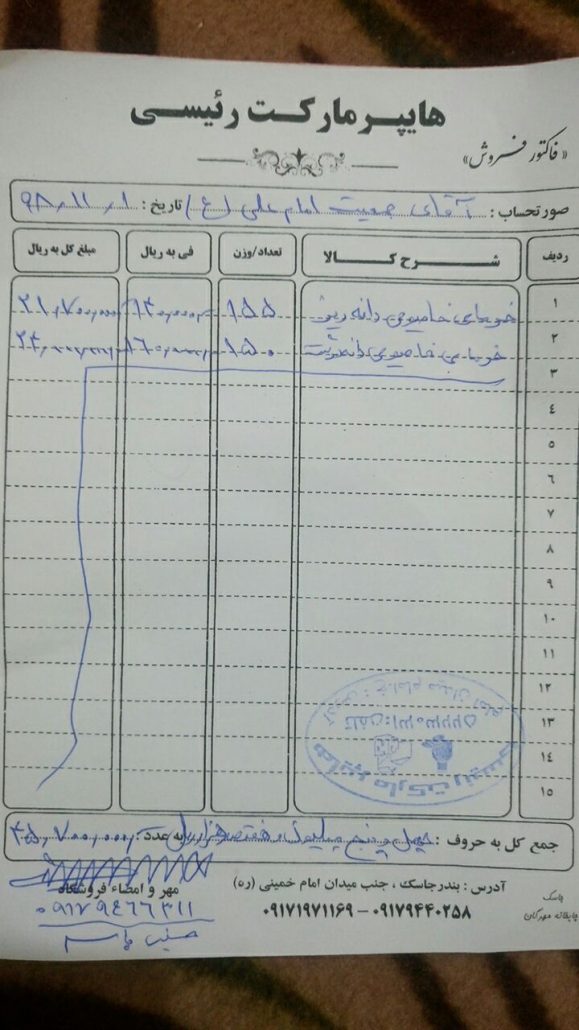 هایپر مارکت رئیسی
«فاکتور فروش»
صورتحساب : آقای جمعیت امام علی (ع) تاریخ : ۹۸/۱۱/۱
ردیف شرح کالا تعداد/وزن فی به ریال مبلغ کل به ریال
۱ خرمای خاصویی دانه ریز ۱۵۵ ۱۴۰,۰۰۰ ۲۱,۷۰۰,۰۰۰
۲ خرمای خاصویی دانه درشت ۱۵۰ ۱۶۰,۰۰۰ ۲۴,۰۰۰,۰۰۰
۳
۴
۵
۶
۷
۸
۹
۱۰
۱۱
۱۲
۱۳
۱۴
۱۵
هایپر مارکت رئیسی
جمع کل به حروف : چهل و پنج میلیون و هفتصد هزار ریال به عدد : ۴۵,۷۰۰,۰۰۰
آدرس : بندرجاسک ، جنب میدان امام خمینی (ره) مهر و امضاء فروشگاه
۰۹۱۷۹۴۴۰۲۵۸ – ۰۹۱۷۱۹۷۱۱۶۹
۰۹۱۷۹۴۶۶۳۱۱
جاسک
چاپخانه مهرگان